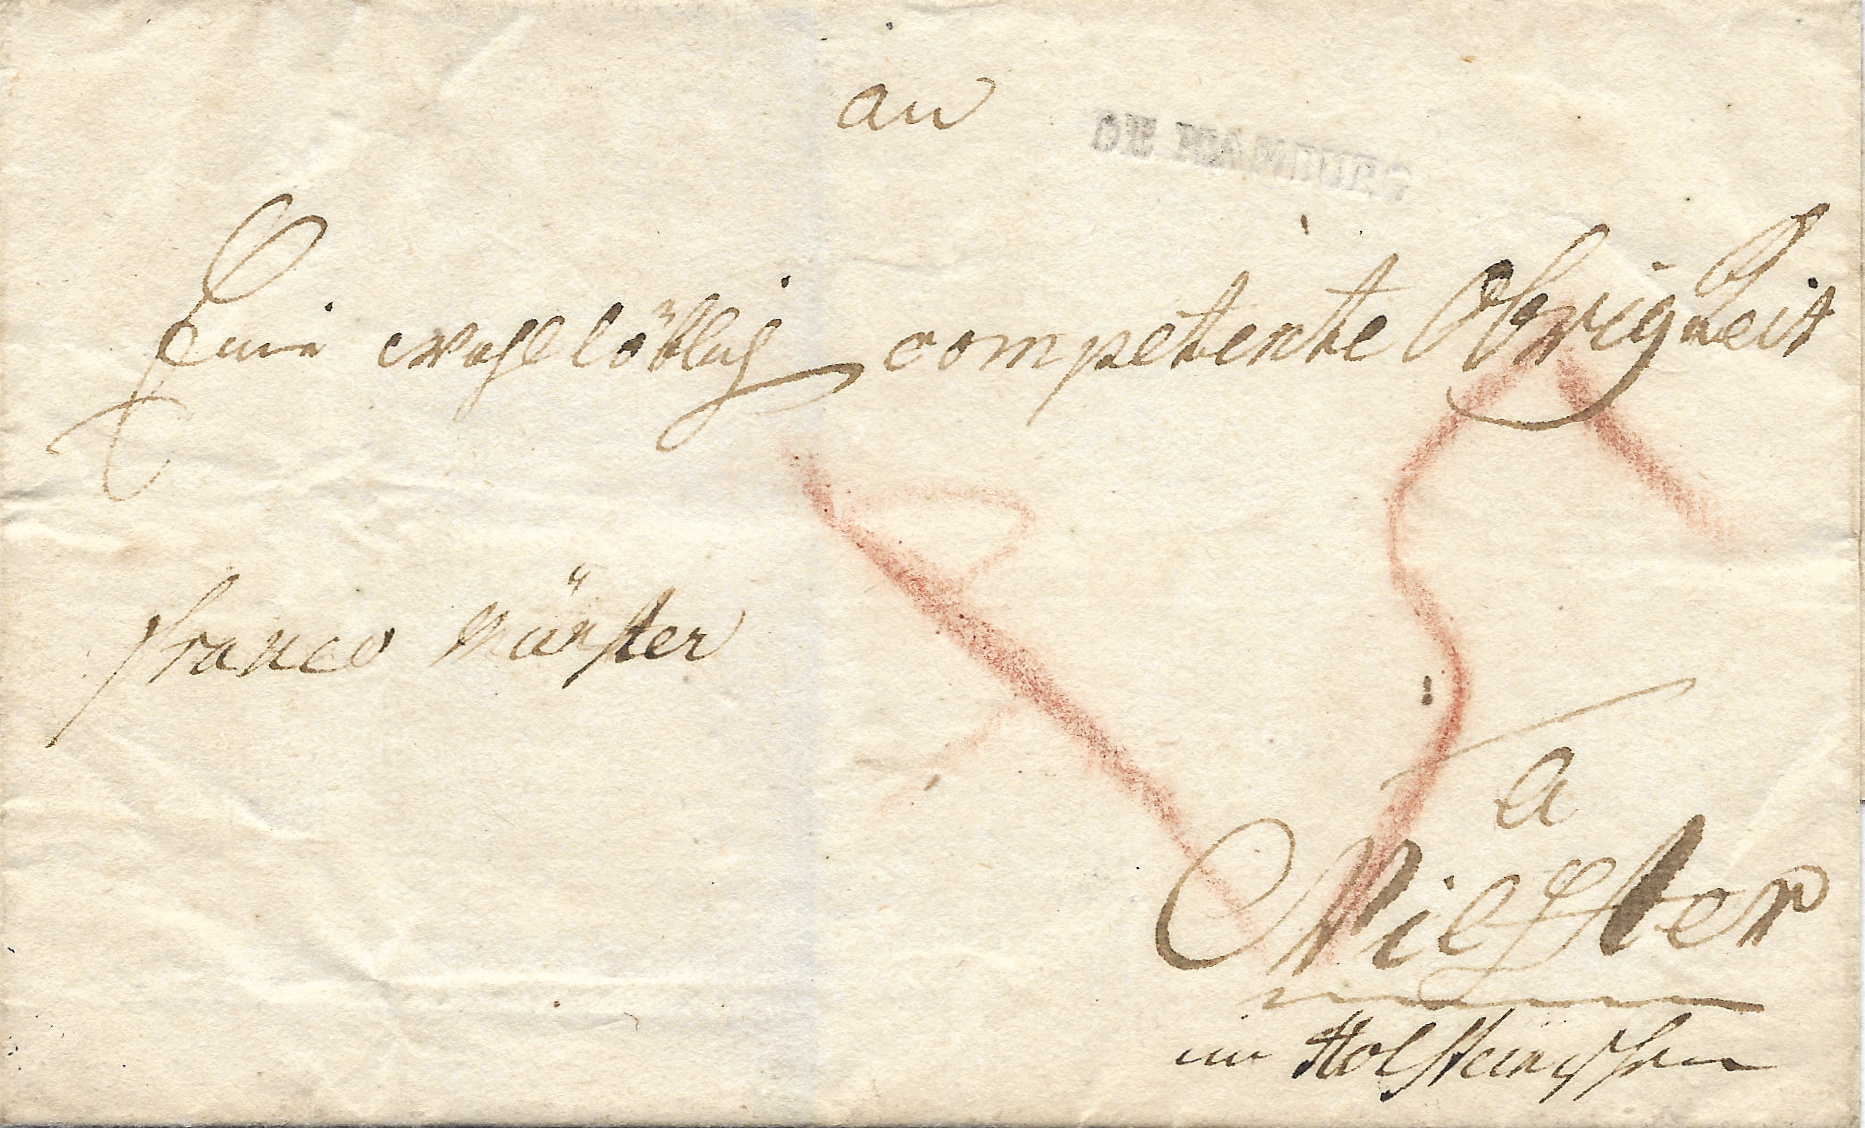 an
DE HAMBURG
Eine wohllöblich competente Obrigkeit
franco Münster
a
Wilster
im Holsteinschen